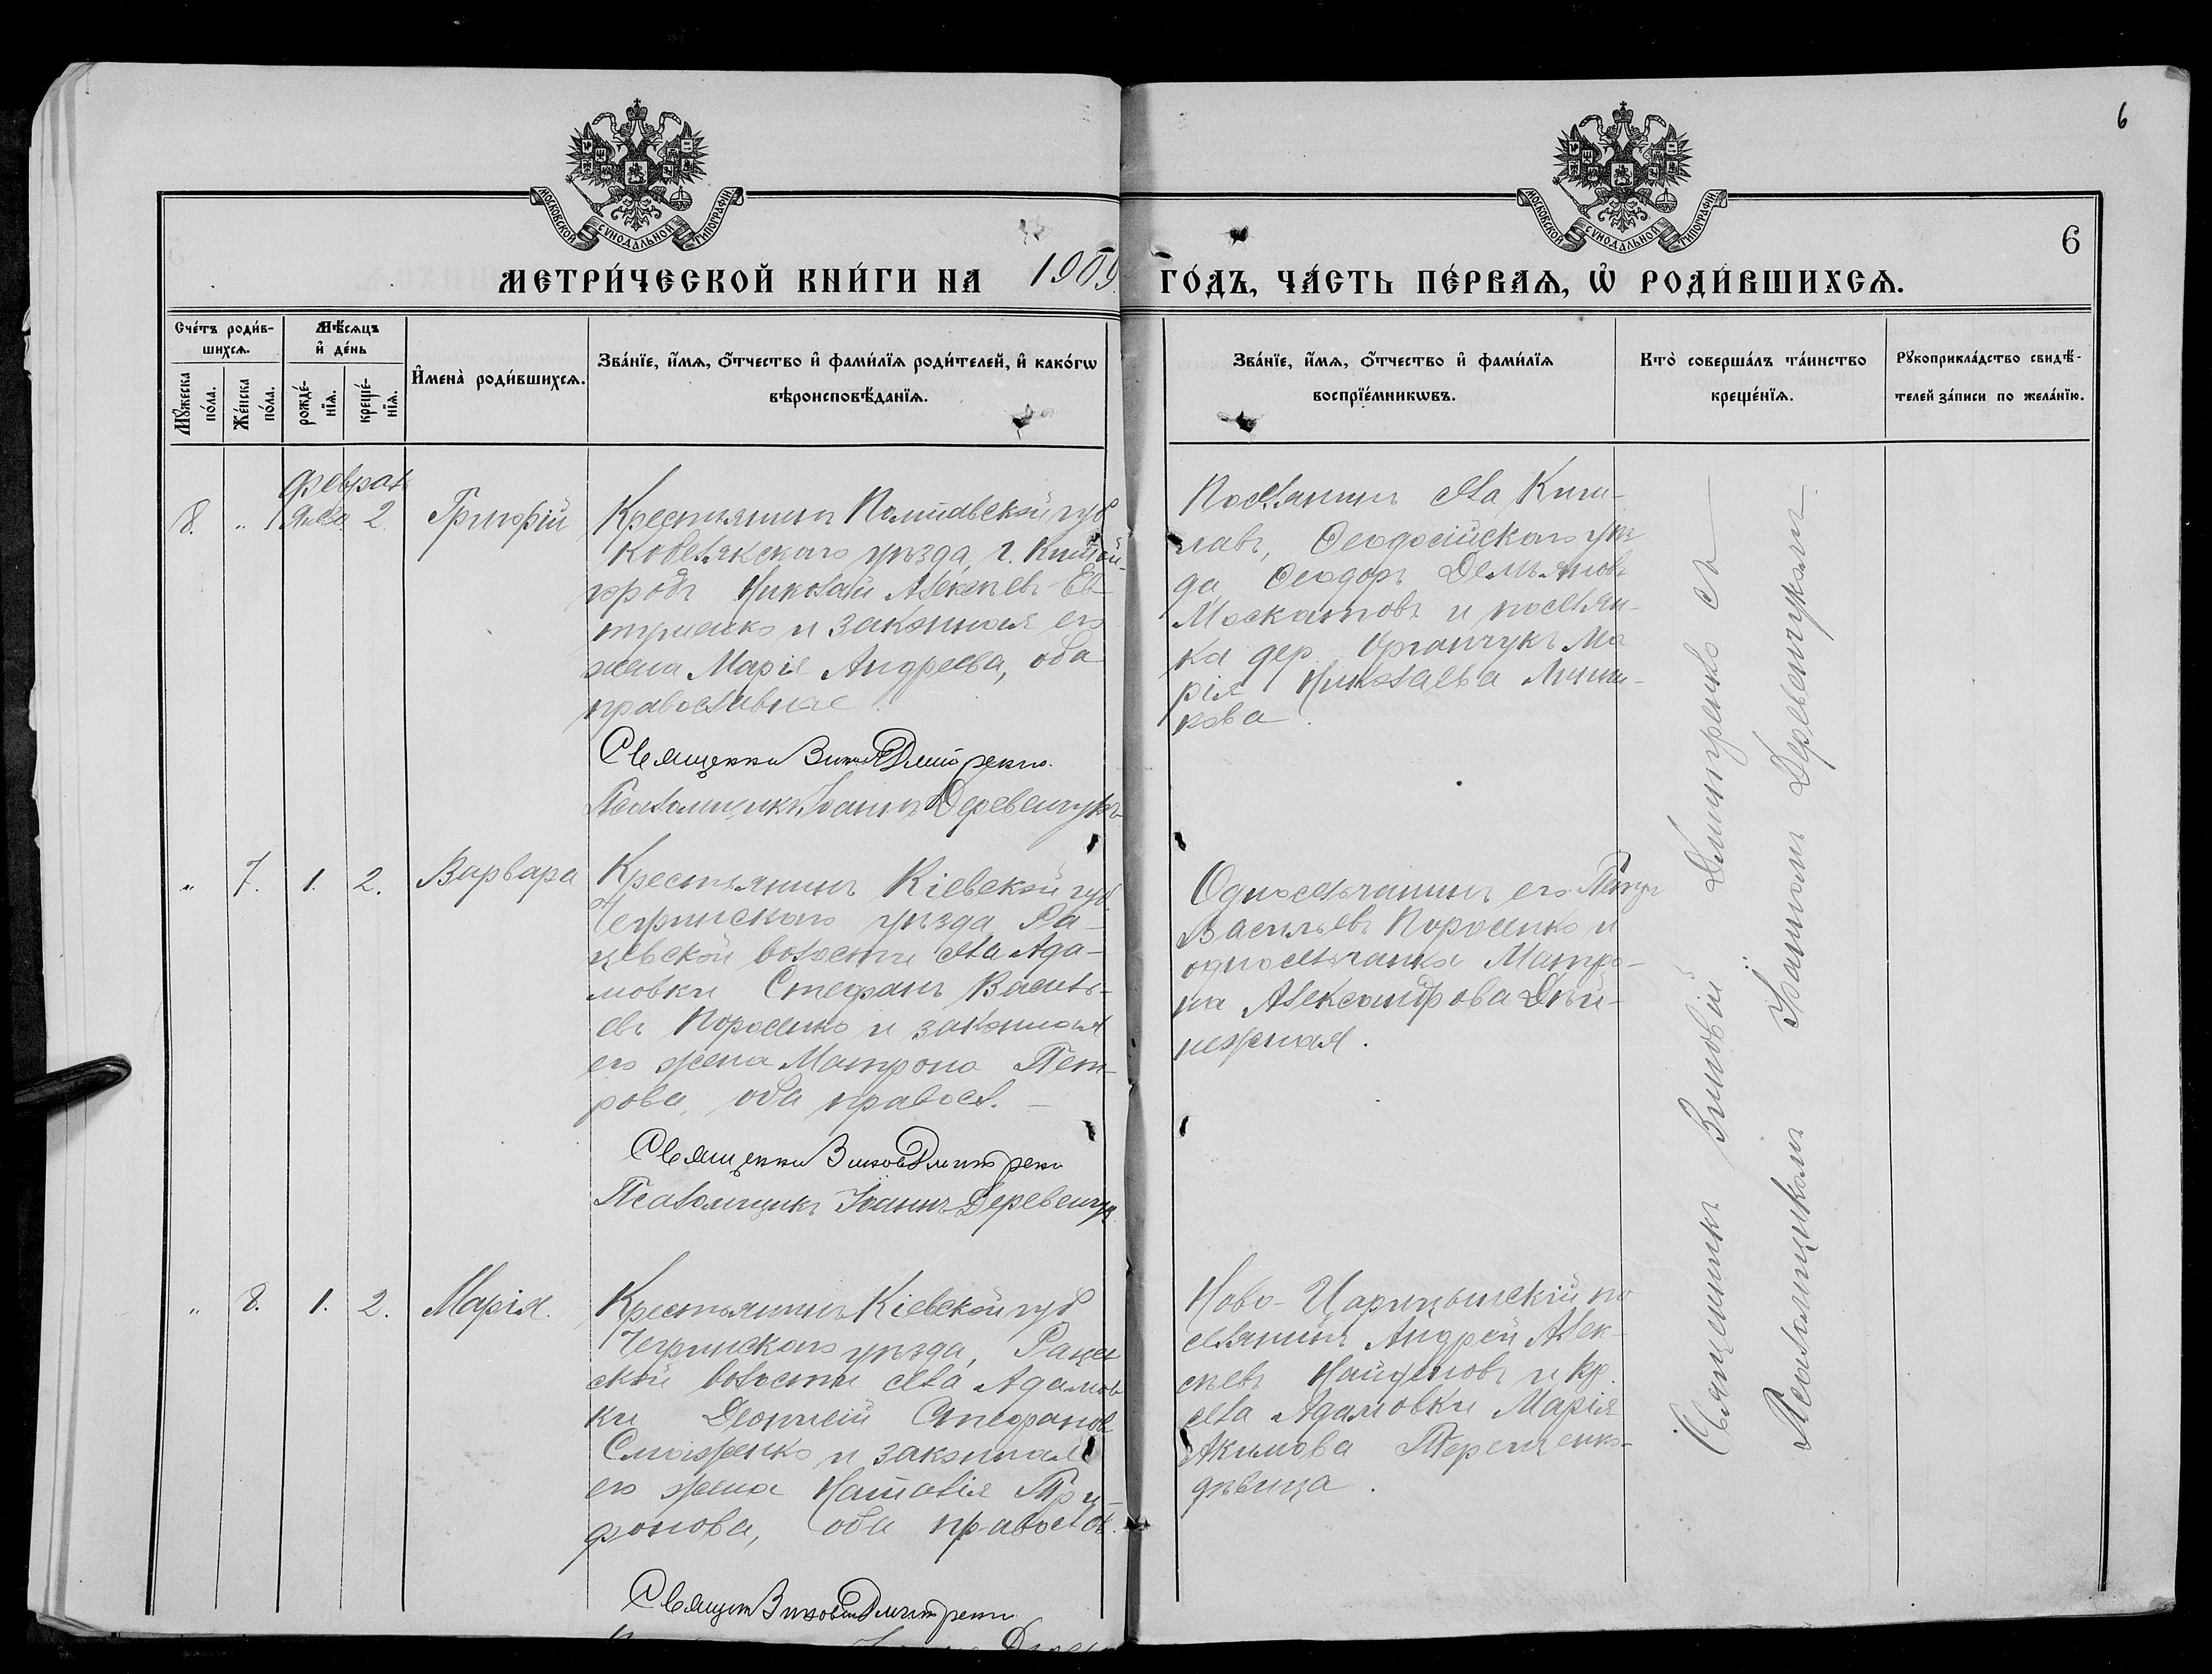 6
МОСКОВСКОЙ СѴНОДАЛЬНОЙ ТИПОГРАФІИ.
МОСКОВСКОЙ СѴНОДАЛЬНОЙ ТИПОГРАФІИ.
6
МЕТРИ́ЧЕСКОЙ КНИ́ГИ НА 1909 ГО́ДЪ, ЧА́СТЬ ПЕ́РВАѦ, Ѡ҆ РОДИ́ВШИХСѦ.
Сче́тъ роди́в-
шихсѧ.
Мꙋжеска
по́ла.
Же́нска
по́ла.
Мѣ́сѧцъ
и҆ де́нь
рожде́-
нїѧ.
креще́-
нїѧ.
И҆мена̀ роди́вшихсѧ.
Зва́нїе, и҆́мѧ, ѻ҆́тчество и҆ фами́лїѧ роди́телей, и҆ како́гѡ
вѣроисповѣ́данїѧ.
Зва́нїе, и҆́мѧ, ѻ҆́тчество и҆ фами́лїѧ
воспрїе́мникѡвъ.
Кто̀ соверша́лъ та́инство
креще́нїѧ.
Рꙋкоприкла́дство свидѣ́-
телей за́писи по жела́нїю.
Феврал
8. " 1 2. Григорій
Крестьянинъ Полтавской губ
Кобелякскаго уѣзда, г. Китай-
городъ Николай Алексѣевъ Ев
тушенко и законная его
жена Марія Андреева, оба
православные.
Священник Зиновій Дмитренко.
Псаломщикъ Іоаннъ Деревенчукъ
Поселянинъ села Киш-
лавъ, Ѳеодосійскаго уѣз
да Ѳеодоръ Демьяновъ
Москатовъ и поселян-
ка дер. Органчукъ Ма
рія Николаева
кова.
" 7. 1. 2. Варвара
Крестьянинъ Кіевской губ.
Чегринскаго уѣзда Ра-
цевской волости села Ада-
мовки Стефанъ Василь-
евъ Поросенко и законная
его жена Матрона Пет-
рова, оба правосл. —
Священник Зиновій Дмитренко
Псаломщикъ Іоаннъ Деревенчук
Односельчанинъ его Петръ
Васильевъ Поросенко и
односельчанка Матро-
на Александрова Дѣй-
нежная.
" 8. 1. 2. Марія.
Крестьянинъ Кіевской губ
Чегринскаго уѣзда, Рацев
ской волости села Адамов
ки Діонисій Стефановъ
Слюсаренко и законная
его жена Наталія Три-
фонова, оба правосл.
Священ Зиновій Дмитренко
Ново-Царицынскій по
селянинъ Андрей Алек-
сѣевъ Найденовъ и кр.
села Адамовки Марія
Акимова Терещенко-
дѣвица.
Священникъ Зиновій Дмитренко съ
Псаломщикомъ Іоанномъ Деревенчукомъ